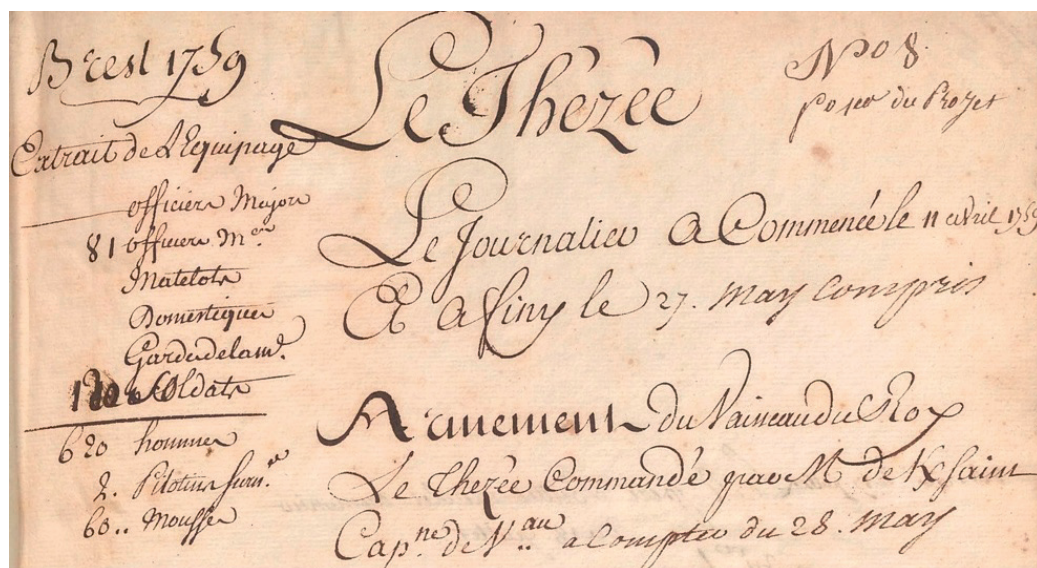 Brest 1759
Extrait de L'Equipage
officiers Majors
81 officiers M.ers
Matelots
Domestiques
Gardes de la m.
Soldats
620 hommes
2. Pilotins surn.re
60.. Mousses
Le Thézée
N.o 8.
du Rozet
Le Journalier a Commencé le 11 avril 1759
Et a finy le 27. may compris
Armement du Vaisseau du Roy
Le Thezée Commandé par M de Kersaint
Cap.ne de V.au a compter du 28. may